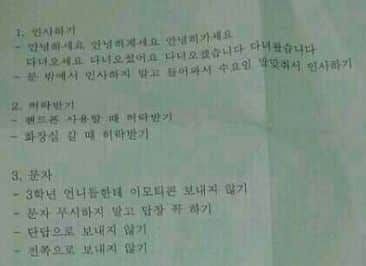 1. 인사하기
- 안녕하세요 안녕히계세요 안녕히가세요
다녀오세요 다녀오셨어요 다녀오겠습니다 다녀왔습니다
- 문 밖에서 인사하지 말고 들어와서 수요인 알맞춰서 인사하기
2. 허락받기
- 핸드폰 사용할 때 허락받기
- 화장실 갈 때 허락받기
3. 문자
- 3학년 언니들한테 이모티콘 보내지 않기
- 문자 무시하지 말고 답장 꼭 하기
- 단답으로 보내지 않기
- 전쪽으로 보내지 않기